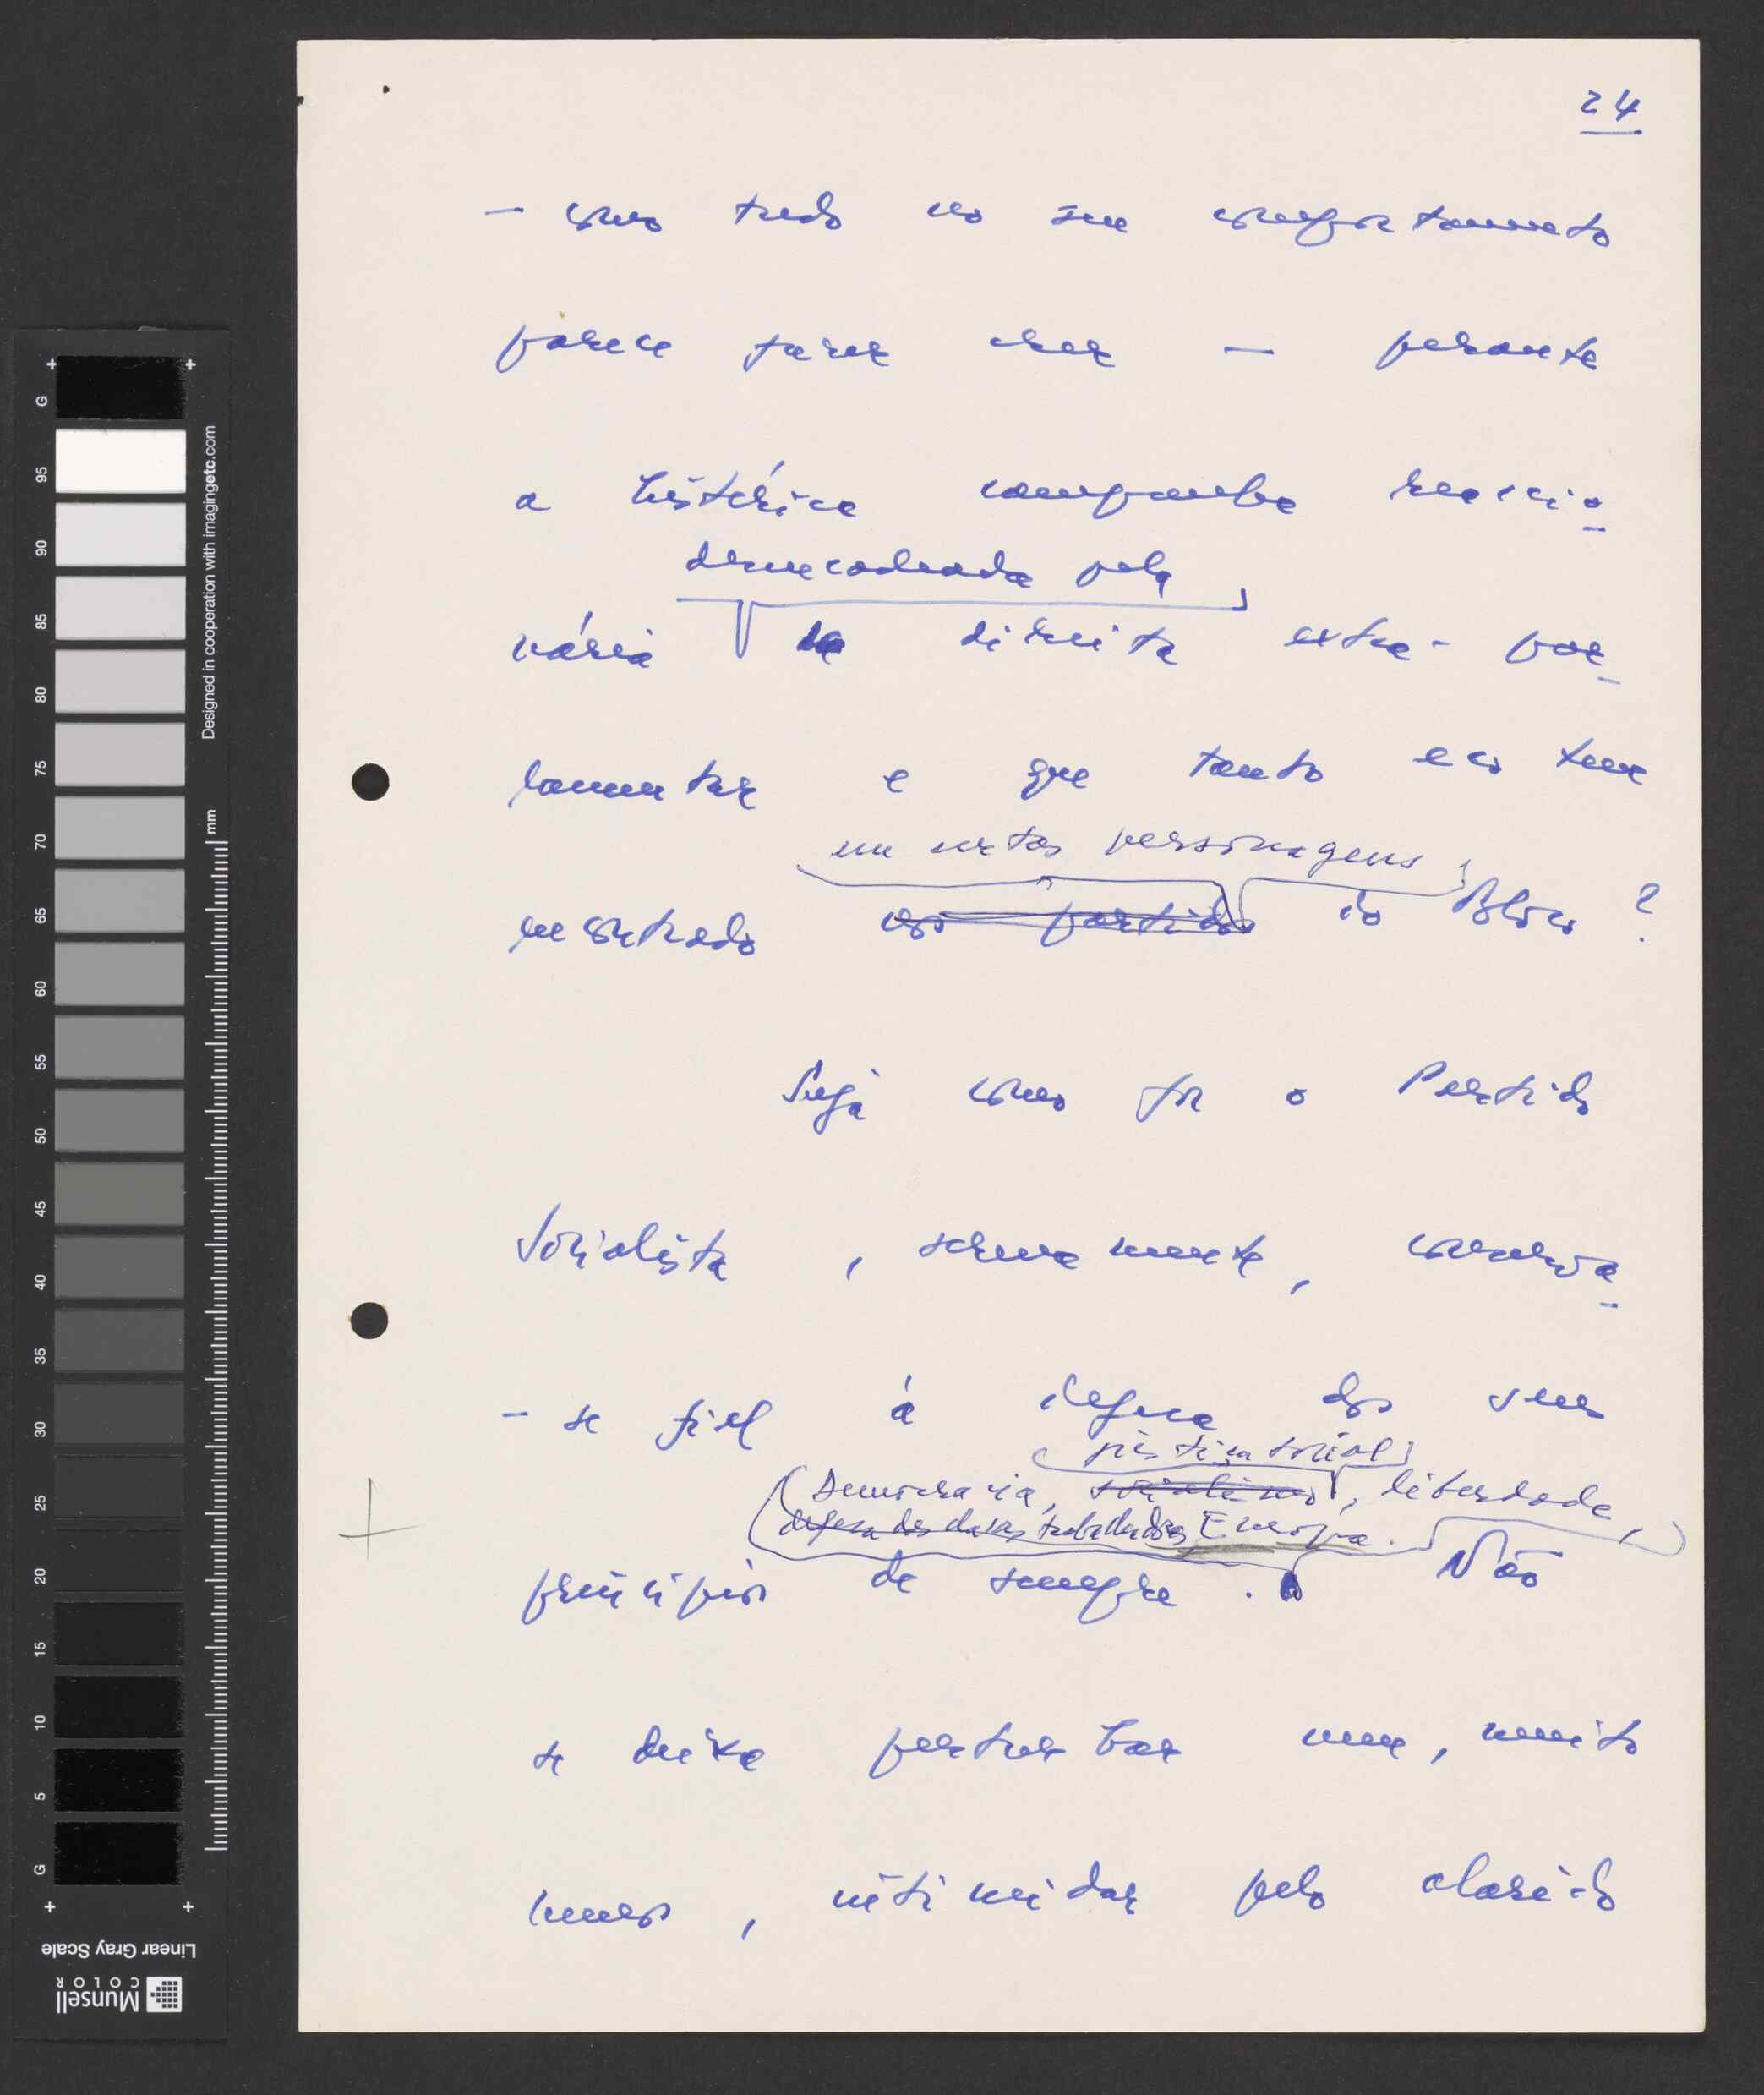 24
- como tudo no seu comportamento
parece fazer crer - perante
a histérica campanha reaccio
desencadeada pela
nária da direita extra-par
lamentar e que tanto eco tem
em certas personagens
encontrado nos partidos do Bloco ?
Seja como for o Partido
Socialista, serenamente, conserva
- se fiel à defesa dos seus
justiça social
(Democracia, socialismo, liberdade,
defesa das classes trabalhadoras, Europa.
princípios de sempre. Não
se deixa perturbar nem, muito
menos, intimidar pelo alarido
G 95 90 85 80 75 70 65 60 55 50 45 40 35 30 25 20 15 10 5 G
Designed in cooperation with imagingetc.com
mm
Linear Gray Scale
Munsell
COLOR